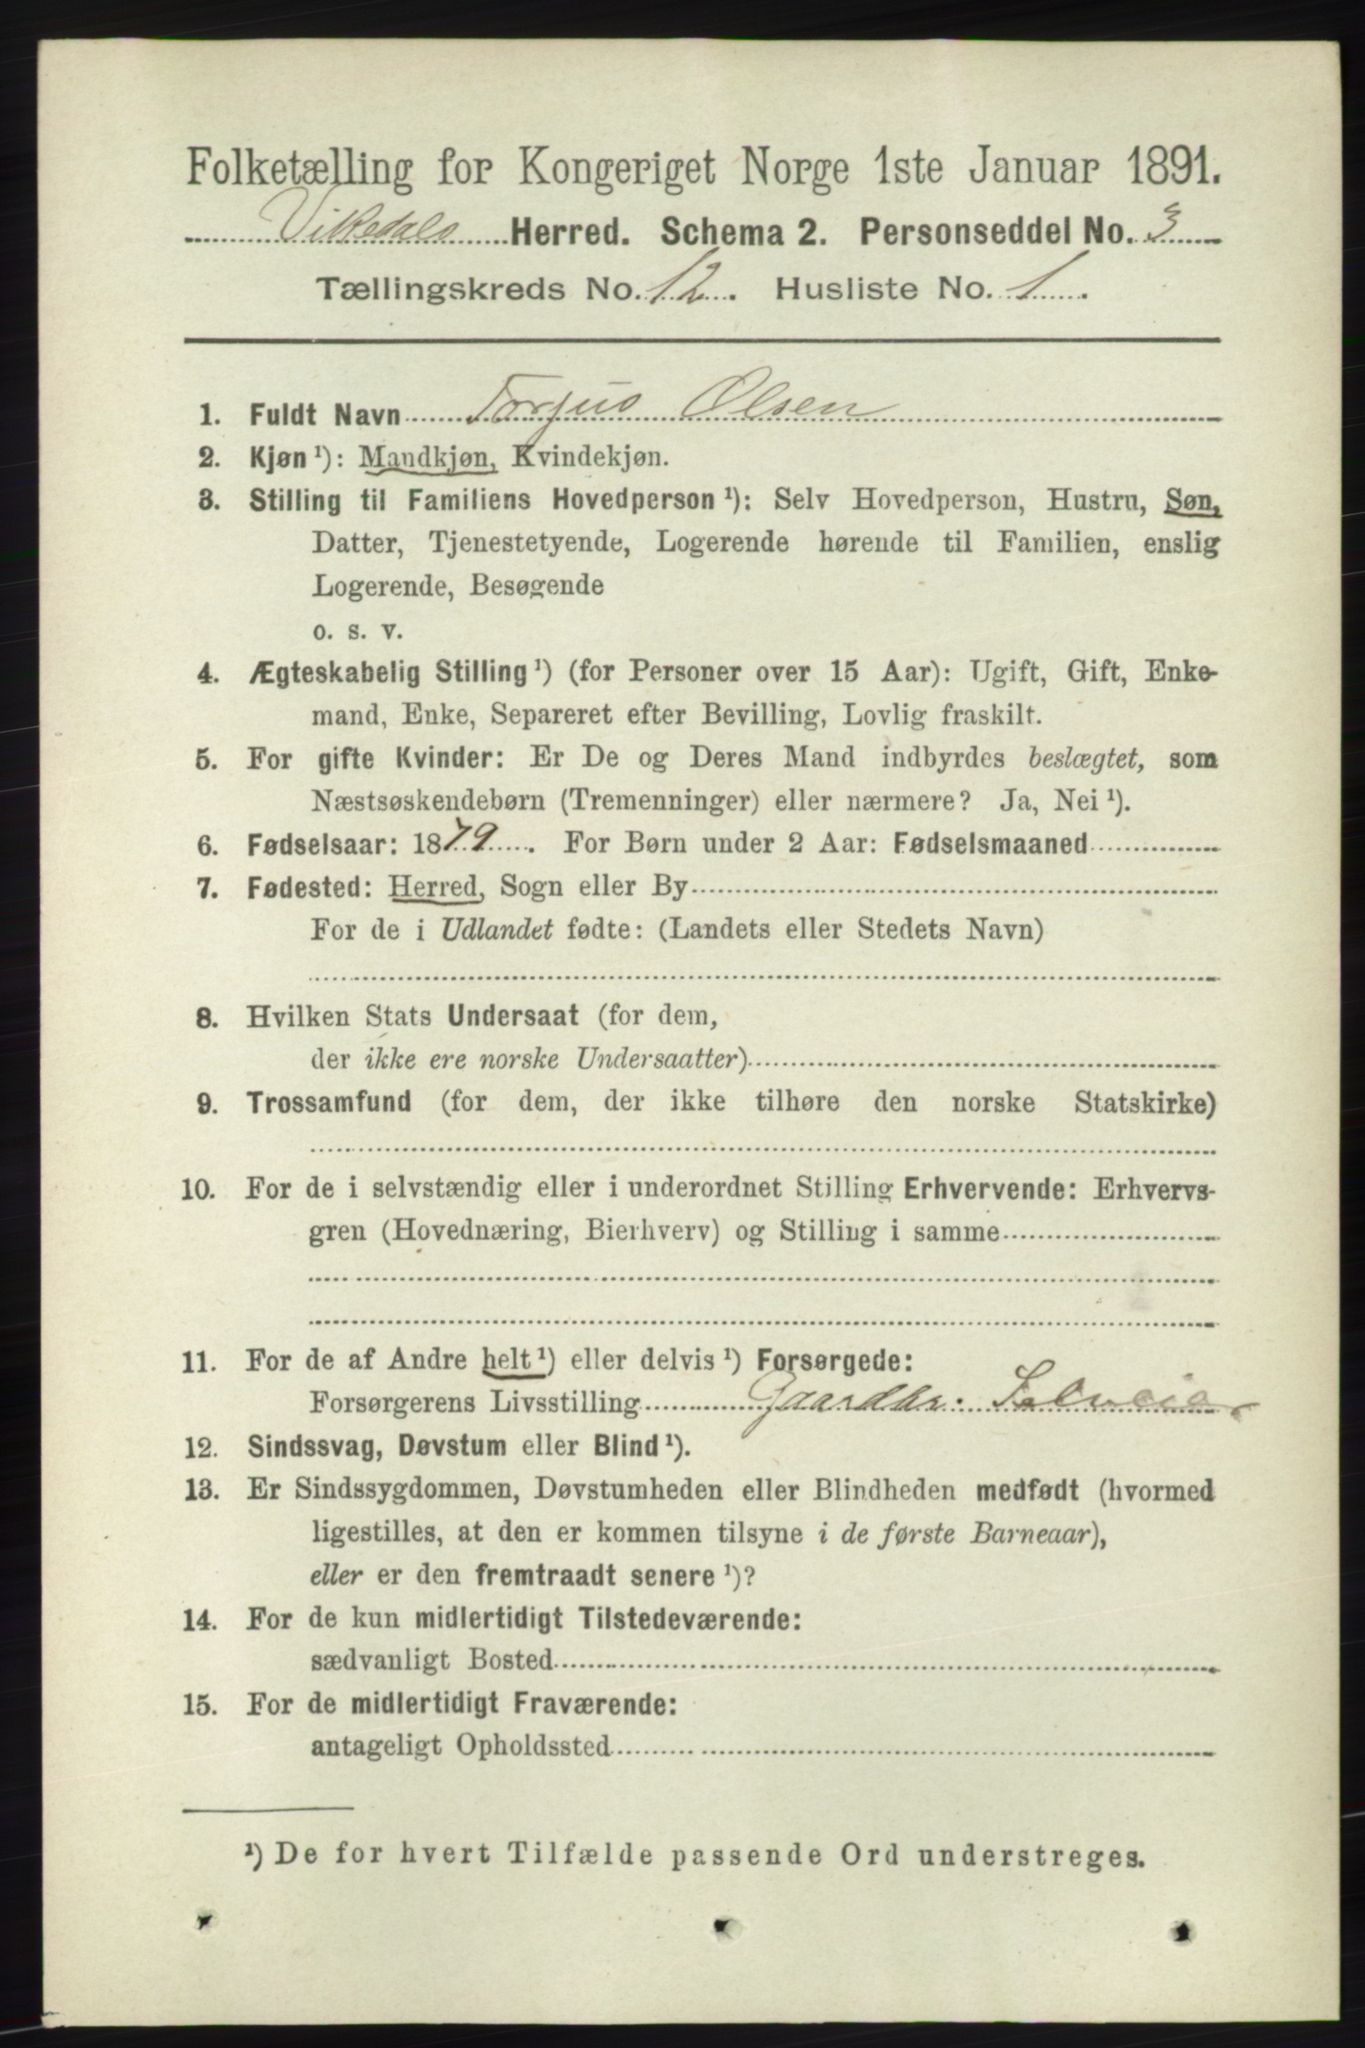 Folketælling for Kongeriget Norge 1ste Januar 1891.
Vikedals Herred. Schema 2. Personseddel No. 3
Tællingskreds No. 12. Husliste No. 1.
1. Fuldt Navn Torjus Olsen
2. Kjøn ¹): Mandkjøn, Kvindekjøn.
3. Stilling til Familiens Hovedperson ¹): Selv Hovedperson, Hustru, Søn,
Datter, Tjenestetyende, Logerende hørende til Familien, enslig
Logerende, Besøgende
o. s. v.
4. Ægteskabelig Stilling ¹) (for Personer over 15 Aar): Ugift, Gift, Enke-
mand, Enke, Separeret efter Bevilling, Lovlig fraskilt.
5. For gifte Kvinder: Er De og Deres Mand indbyrdes beslægtet, som
Næstsøskendebørn (Tremenninger) eller nærmere? Ja, Nei ¹).
6. Fødselsaar: 1879. For Børn under 2 Aar: Fødselsmaaned
7. Fødested: Herred, Sogn eller By
For de i Udlandet fødte: (Landets eller Stedets Navn)
8. Hvilken Stats Undersaat (for dem,
der ikke ere norske Undersaatter)
9. Trossamfund (for dem, der ikke tilhøre den norske Statskirke)
10. For de i selvstændig eller i underordnet Stilling Erhvervende: Erhvervs-
gren (Hovednæring, Bierhverv) og Stilling i samme
11. For de af Andre helt ¹) eller delvis ¹) Forsørgede:
Forsørgerens Livsstilling Gaardbr. Selveier
12. Sindssvag, Døvstum eller Blind ¹).
13. Er Sindssygdommen, Døvstumheden eller Blindheden medfødt (hvormed
ligestilles, at den er kommen tilsyne i de første Barneaar),
eller er den fremtraadt senere ¹)?
14. For de kun midlertidigt Tilstedeværende:
sædvanligt Bosted
15. For de midlertidigt Fraværende:
antageligt Opholdssted
¹) De for hvert Tilfælde passende Ord understreges.